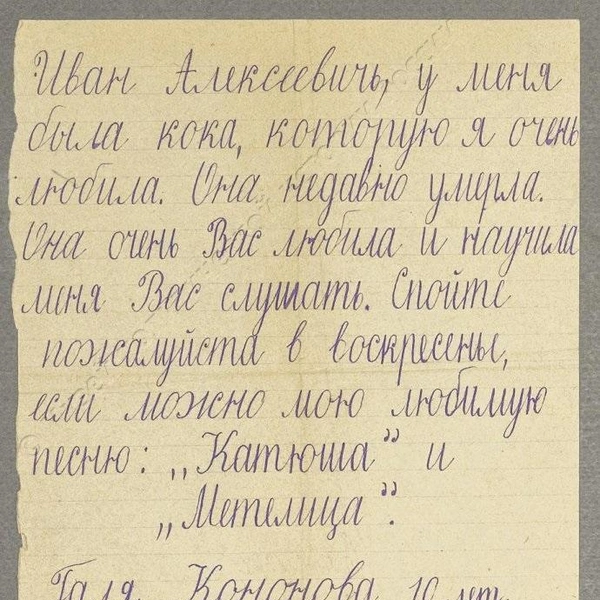 Иван Алексеевичь, у меня
была кока, которую я очень
любила. Она недавно умерла.
Она очень Вас любила и научила
меня Вас слушать. Спойте
пожалуйста в воскресенье,
если можно мою любимую
песню: „Катюша” и
„Метелица”.
Галя Кононова 10 лет.